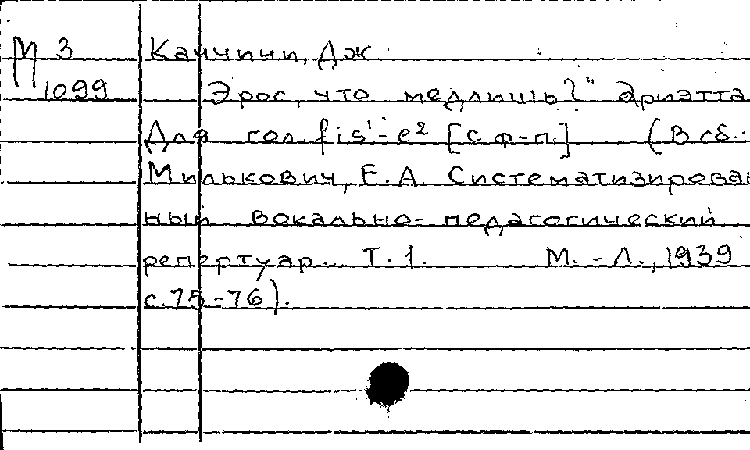 М 3 Каччини, Дж
1099 Эрос, что медлишь?" Ариэтта
Для гол. fis¹-e² [с ф-п.] (В сб.
Милькович, Е.А Систематизирован
ный вокально-педагогический
репертуар... Т.1. М.-Л., 1939
с.75-76).